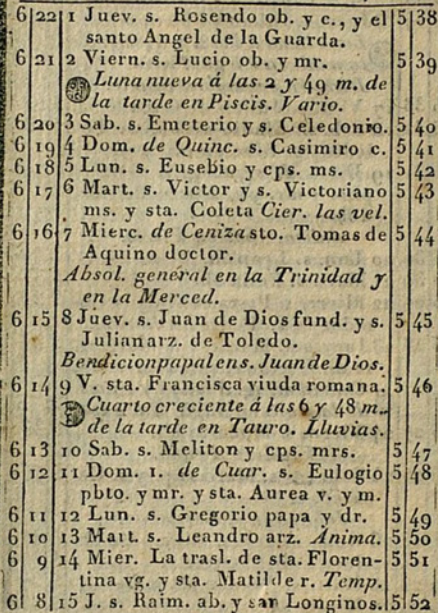 6 22 1 Juev. s. Rosendo ob. y c., y el 5 38
santo Angel de la Guarda.
6 21 2 Viern. s. Lucio ob. y mr. 5 39
Luna nueva á las 2 y 49 m. de
la tarde en Piscis. Vario.
6 20 3 Sab. s. Emeterio y s. Celedonio. 5 40
6 19 4 Dom. de Quinc. s. Casimiro c. 5 41
6 18 5 Lun. s. Eusebio y cps. ms. 5 42
6 17 6 Mart. s. Victor y s. Victoriano 5 43
ms. y sta. Coleta Cier. las vel.
6 16 7 Mierc. de Ceniza sto. Tomas de 5 44
Aquino doctor.
Absol. general en la Trinidad y
en la Merced.
6 15 8 Juev. s. Juan de Dios fund. y s. 5 45
Julian arz. de Toledo.
Bendicion papal en s. Juan de Dios.
6 14 9 V. sta. Francisca viuda romana. 5 46
Cuarto creciente á las 6 y 48 m.
de la tarde en Tauro. Lluvias.
6 13 10 Sab. s. Meliton y cps. mrs. 5 47
6 12 11 Dom. 1. de Cuar. s. Eulogio 5 48
pbto. y mr. y sta. Aurea v. y m.
6 11 12 Lun. s. Gregorio papa y dr. 5 49
6 10 13 Mart. s. Leandro arz. Anima. 5 50
6 9 14 Mier. La trasl. de sta. Floren- 5 51
tina vg. y sta. Matilde r. Temp.
6 8 15 J. s. Raim. ab. y san Longinos. 5 52